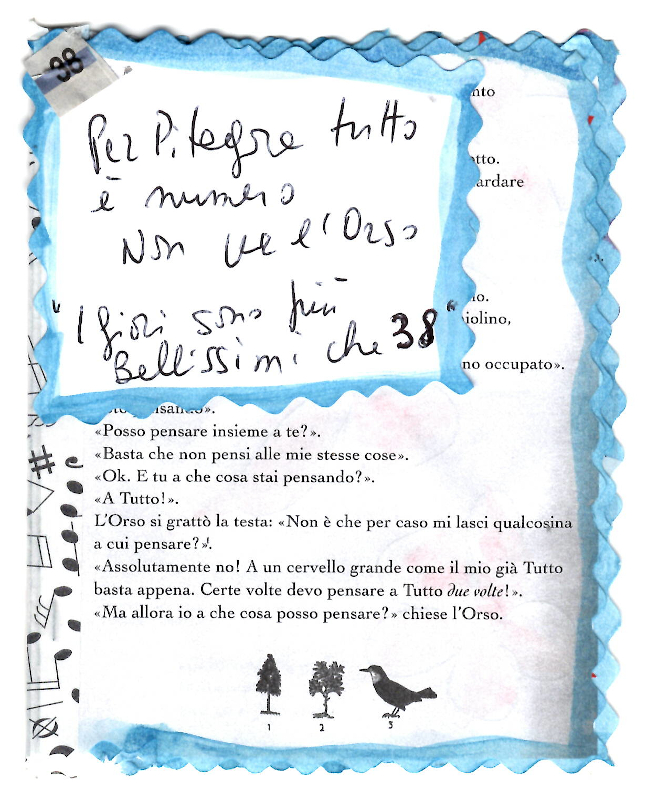 98
Per Pitagora tutto
è numero
Non per l'Orso
"I fiori sono più
Bellissimi che 38"
nto
tto.
ardare
io.
iolino,
no occupato».
«Posso pensare insieme a te?».
«Basta che non pensi alle mie stesse cose».
«Ok. E tu a che cosa stai pensando?».
«A Tutto!».
L'Orso si grattò la testa: «Non è che per caso mi lasci qualcosina
a cui pensare?».
«Assolutamente no! A un cervello grande come il mio già Tutto
basta appena. Certe volte devo pensare a Tutto due volte!».
«Ma allora io a che cosa posso pensare?» chiese l'Orso.
1 2 3